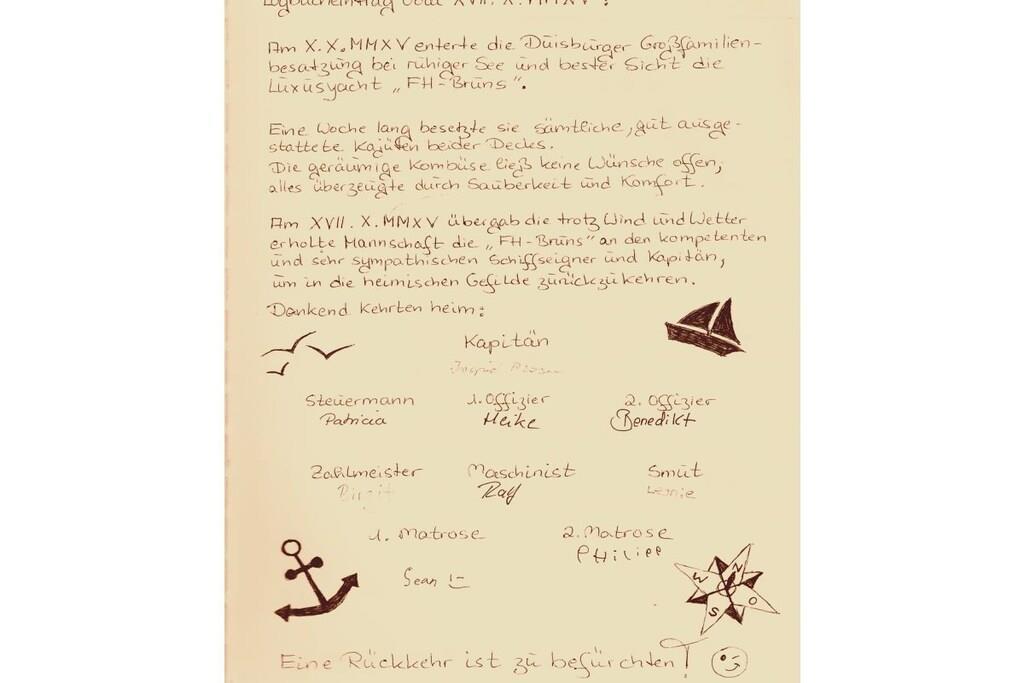 Logbucheintrag vom XVII.X.MMXV:
Am X.X.MMXV enterte die Duisburger Großfamilien-
besatzung bei ruhiger See und bester Sicht die
Luxusyacht „FH-Bruns".
Eine Woche lang besetzte sie sämtliche, gut ausge-
stattete Kajüten beider Decks.
Die geräumige Kombüse ließ keine Wünsche offen,
alles überzeugte durch Sauberkeit und Komfort.
Am XVII.X.MMXV übergab die trotz Wind und Wetter
erholte Mannschaft die „FH-Bruns" an den kompetenten
und sehr sympathischen Schiffseigner und Kapitän,
um in die heimischen Gefilde zurückzukehren.
Dankend kehrten heim:
Kapitän
Steuermann 1. Offizier 2. Offizier
Patricia Heike Benedikt
Zahlmeister Maschinist Smut
Birgit Ralf Leonie
1. Matrose 2. Matrose
Philipp
Sean
W N O S
Eine Rückkehr ist zu befürchten!